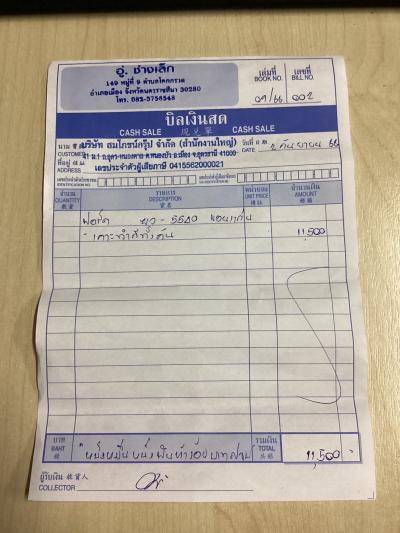 อู่ ช่างเล็ก
149 หมู่ที่ 9 ตำบลโคกกรวด
อำเภอเมือง จังหวัดนครราชสีมา 30280
โทร. 082-5756548
เล่มที่ เลขที่
BOOK NO. BILL NO.
01/66 002
บิลเงินสด
CASH SALE 現兌單 CASH SALE
นาม บริษัท สมไกรน์กรุ๊ป จำกัด (สำนักงานใหญ่) วันที่
CUSTOMER ต.หนองบัว อ.เมือง จ.อุดรธานี 41000 DATE 2 กันยายน 66
ที่อยู่
ADDRESS เลขประจำตัวผู้เสียภาษี 0415562000021
จำนวน รายการ หน่วยละ จำนวนเงิน
QUANTITY DESCRIPTION UNIT PRICE AMOUNT
數量 貨名 價錢 銀額
ฟอร์ด 5540
- เคาะทำสีทั้งคัน 11,500
บาท หนึ่งหมื่นหนึ่งพันห้าร้อยบาทถ้วน รวมเงิน
BAHT TOTAL 11,500 -
銖 共銀
ผู้รับเงิน 收貨人
COLLECTOR